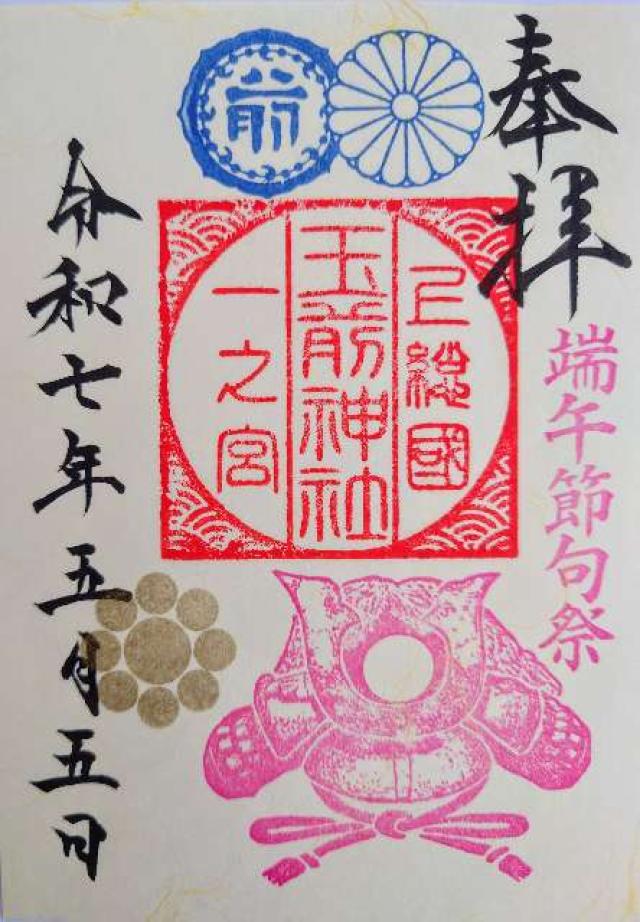 奉拝
端午節句祭
前
上總國
玉前神社
一之宮
令和七年五月五日